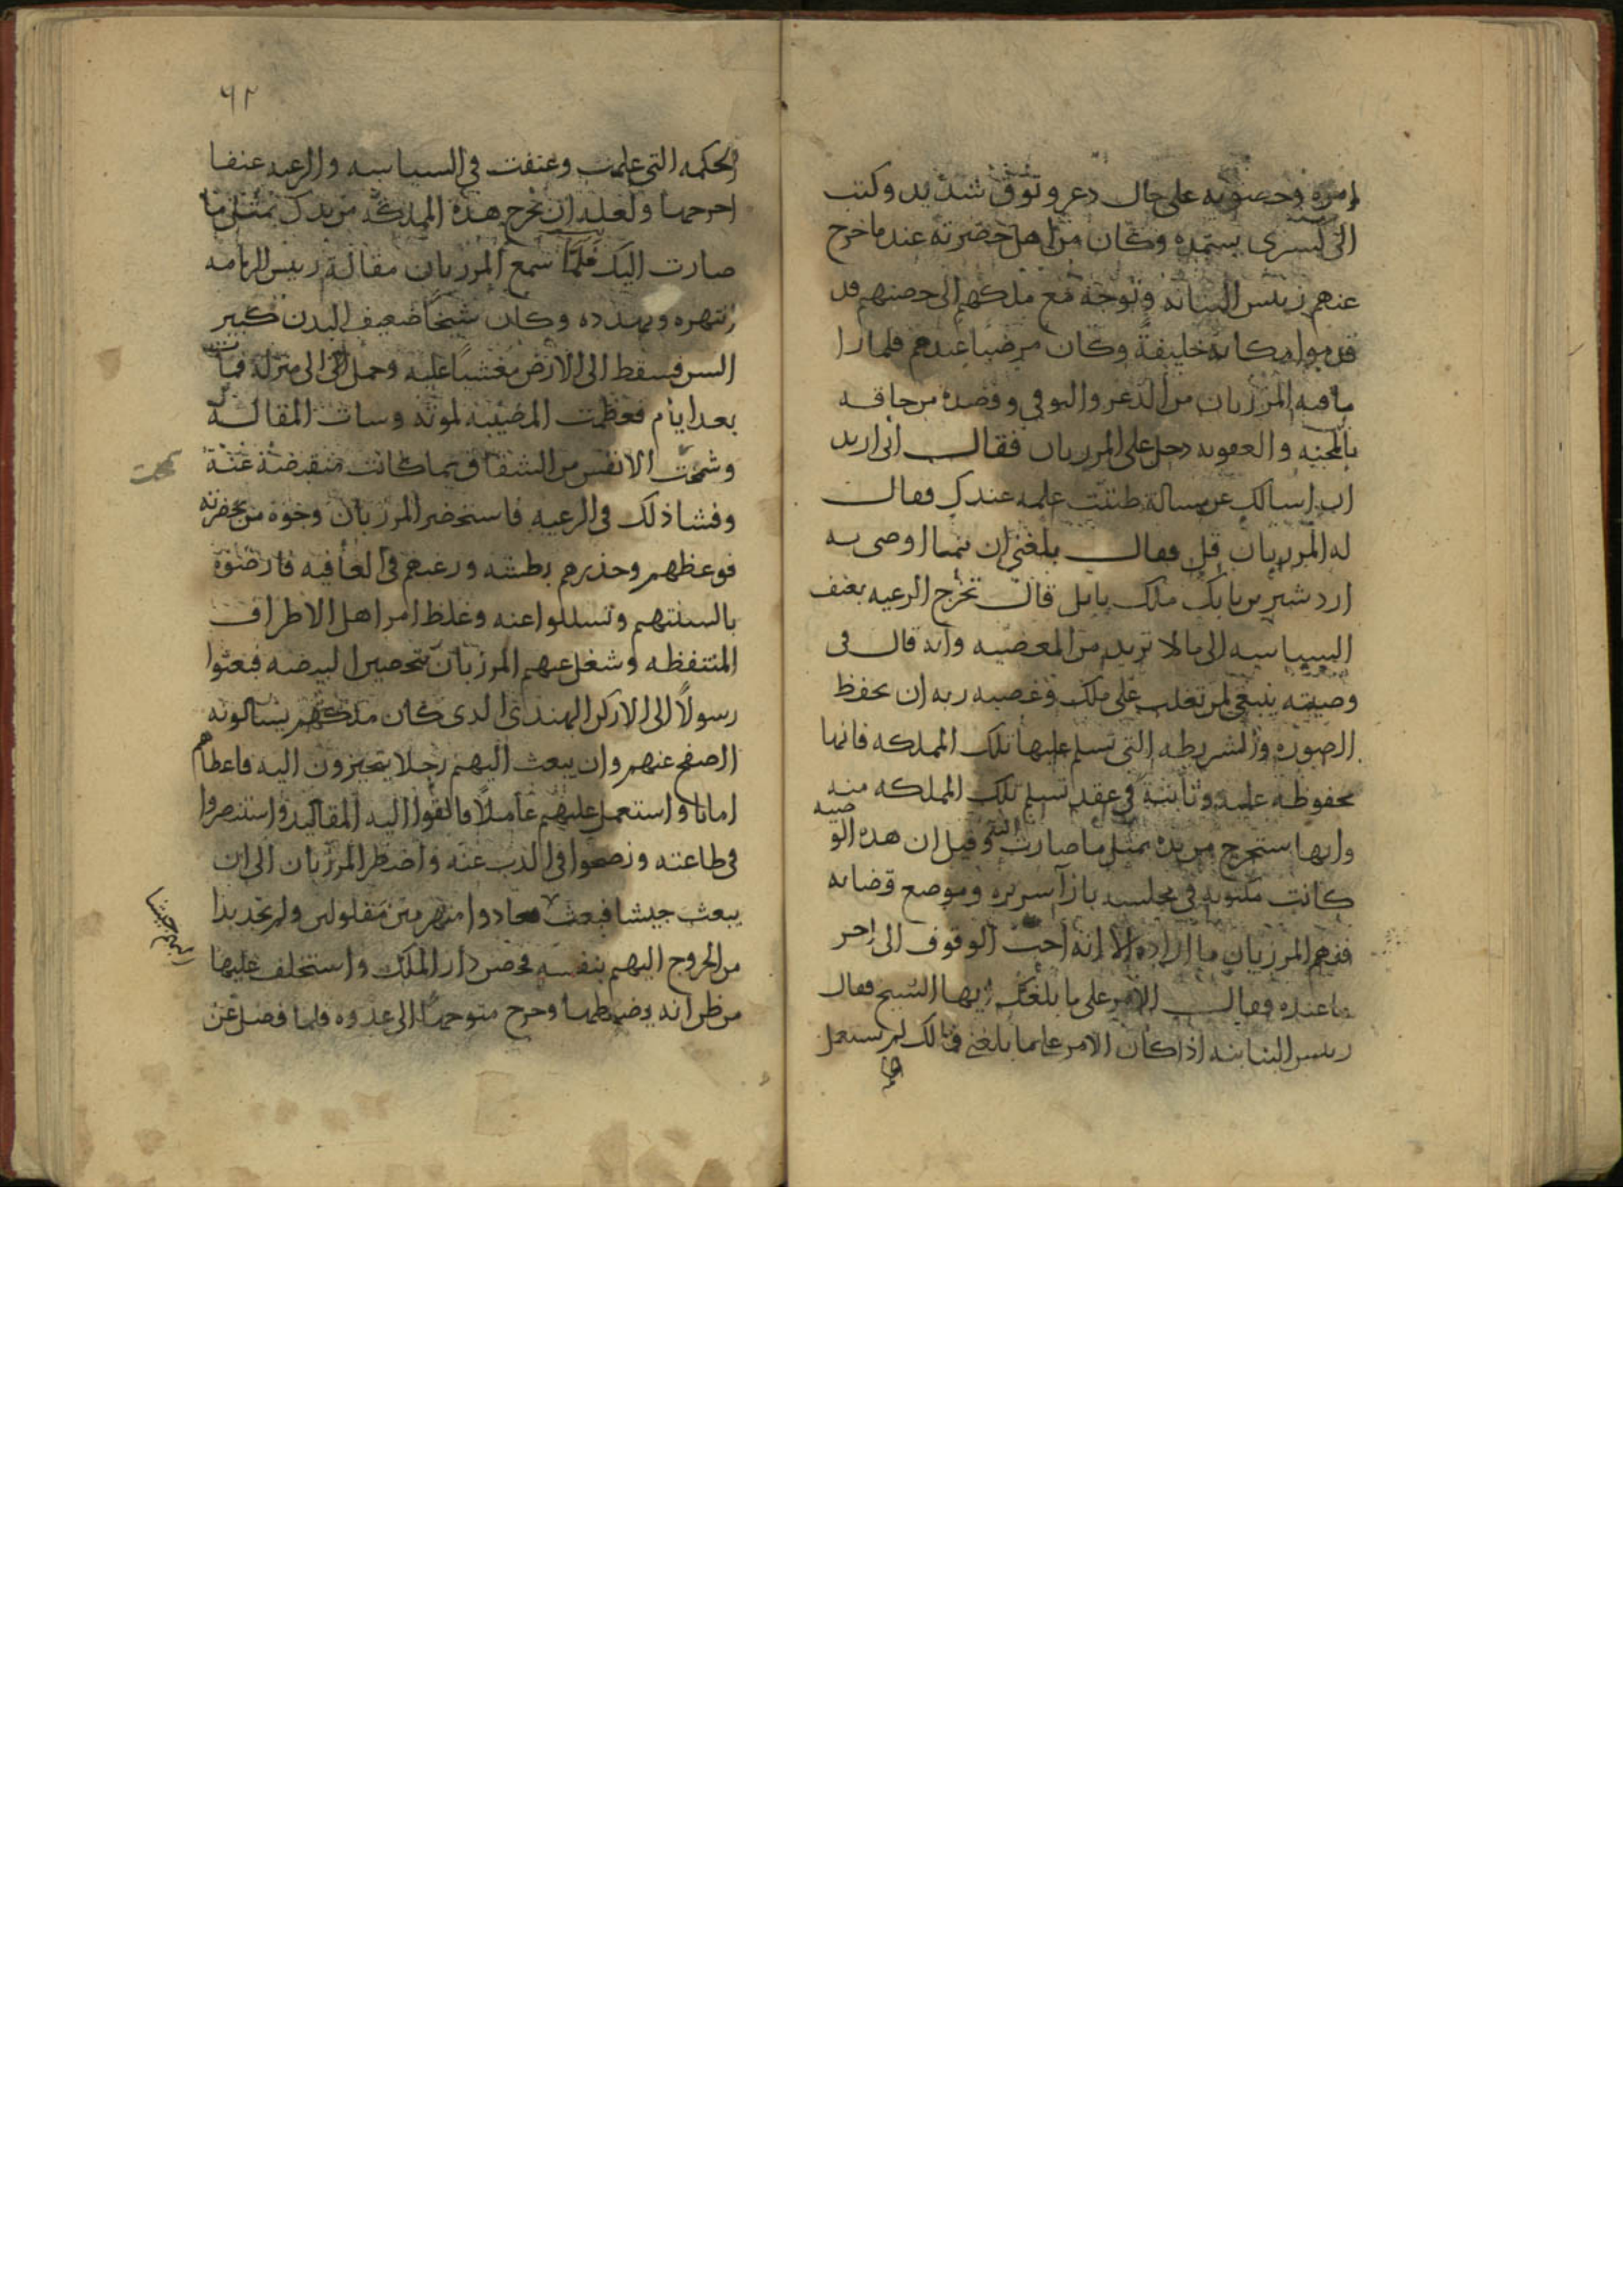 امره وحصونه على حال دعر وتوق شديد وكتب
الى كسرى يستمده وكان من اهل حضرته عند ما خرج
عنهم رييس البنابنه وتوجه مع ملكهم الى حصنهم قد
قدموا مكانه خليفة وكان مرضيا عندهم فلما راا
ما فيه المرزبان من الذعر والتوقى وقصده من حاقه
بالمحنه والعقوبه دخل على المرزبان فقال انى اريد
ان اسالك عن مسالة ظننت علمه عندك فقال
له المرزبان قل فقال بلغنى ان مما اوصى به
اردشير بن بابك ملك بابل قال تخرج الرعيه بعنف
السياسه الى ما لا تريد من المعصيه وانه قال فى
وصيته ينبغى لمن تغلب على ملك وغصبه ربه ان يحفظ
الصوره والشريطه التى تسلم عليها تلك المملكه فانها
محفوظه عليه وثابتة فى عقد تسلم تلك المملكه منه
وانها ستخرج من يده بمثل ما صارت اليه وقيل ان هذه الوصيه
كانت مكتوبه فى مجلسه بازآ سريره وموضع قضايه
ففهم المرزبان ما اراده الا انه احب الوقوف الى اخر
ما عنده فقال الامر على ما بلغك ايها الشيخ فقال
رييس البنابنه اذا كان الامر على ما بلغنى فمالك لم تستعمل
٦٢
الحكمه التى علمت وعنفت فى السياسه والرعيه عنفا
اخرجها ولعله ان تخرج هذه المملكه من يدك بمثل ما
صارت اليك فلما سمع المرزبان مقالة رييس الزمامه
انتهره وتهدده وكان شيخا ضعيف البدن كبير
السن فسقط الى الارض مغشيا عليه وحمل الى منزله فمات
بعد ايام فعظمت المصيبه لموته وسات المقالة
وشحت الانفس من الشقاق بما كانت منقبضة عنه
وفشا ذلك فى الرعيه فاستحضر المرزبان وجوه من بحضرته
فوعظهم وحذرهم بطشه ورغبهم فى العافيه فارضوه
بالسنتهم وتسللوا عنه وغلظ امر اهل الاطراف
المنتفظه وشغل عنهم المرزبان بتحصين البيضه فبعثوا
رسولا الى الاركن الهندى الدى كان ملكهم يسالونه
الصفح عنهم وان يبعث اليهم رجلا يتحيزون اليه فاعطاهم
امانا واستعمل عليهم عاملا فالقوا اليه المقاليد واستنصروا
فى طاعته ونصحوا فى الذب عنه واضطر المرزبان الى ان
يبعث جيشا فبعث فعادوا منهزمين مفلولين ولم يجد بدا
اليهم جيشا
من الخروج اليهم بنفسه فحصن دار الملك واستخلف عليها
من ظن انه يضبطها وخرج متوجها الى عدوه فلما فصل عن